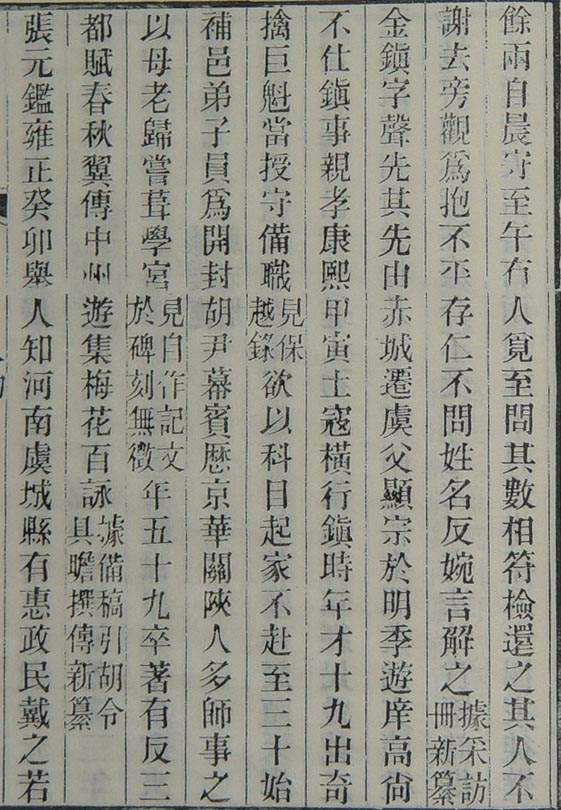 餘兩自晨守至午有人覓至問其數相符檢還之其人不
謝去旁觀爲抱不平存仁不問姓名反婉言解之據采訪冊新纂
金鎭字聲先其先由赤城遷虞父顯宗於明季遊庠高尙
不仕鎭事親孝康熙甲寅土寇橫行鎭時年才十九出奇
擒巨魁當授守備職見保越錄欲以科目起家不赴至三十始
補邑弟子員爲開封胡尹幕賓歷京華關陝人多師事之
以母老歸嘗葺學宮見自作記文於碑刻無徵年五十九卒著有反三
都賦春秋翼傳中州遊集梅花百詠據備稿引胡令具瞻撰傳新纂
張元鑑雍正癸卯舉人知河南虞城縣有惠政民戴之若